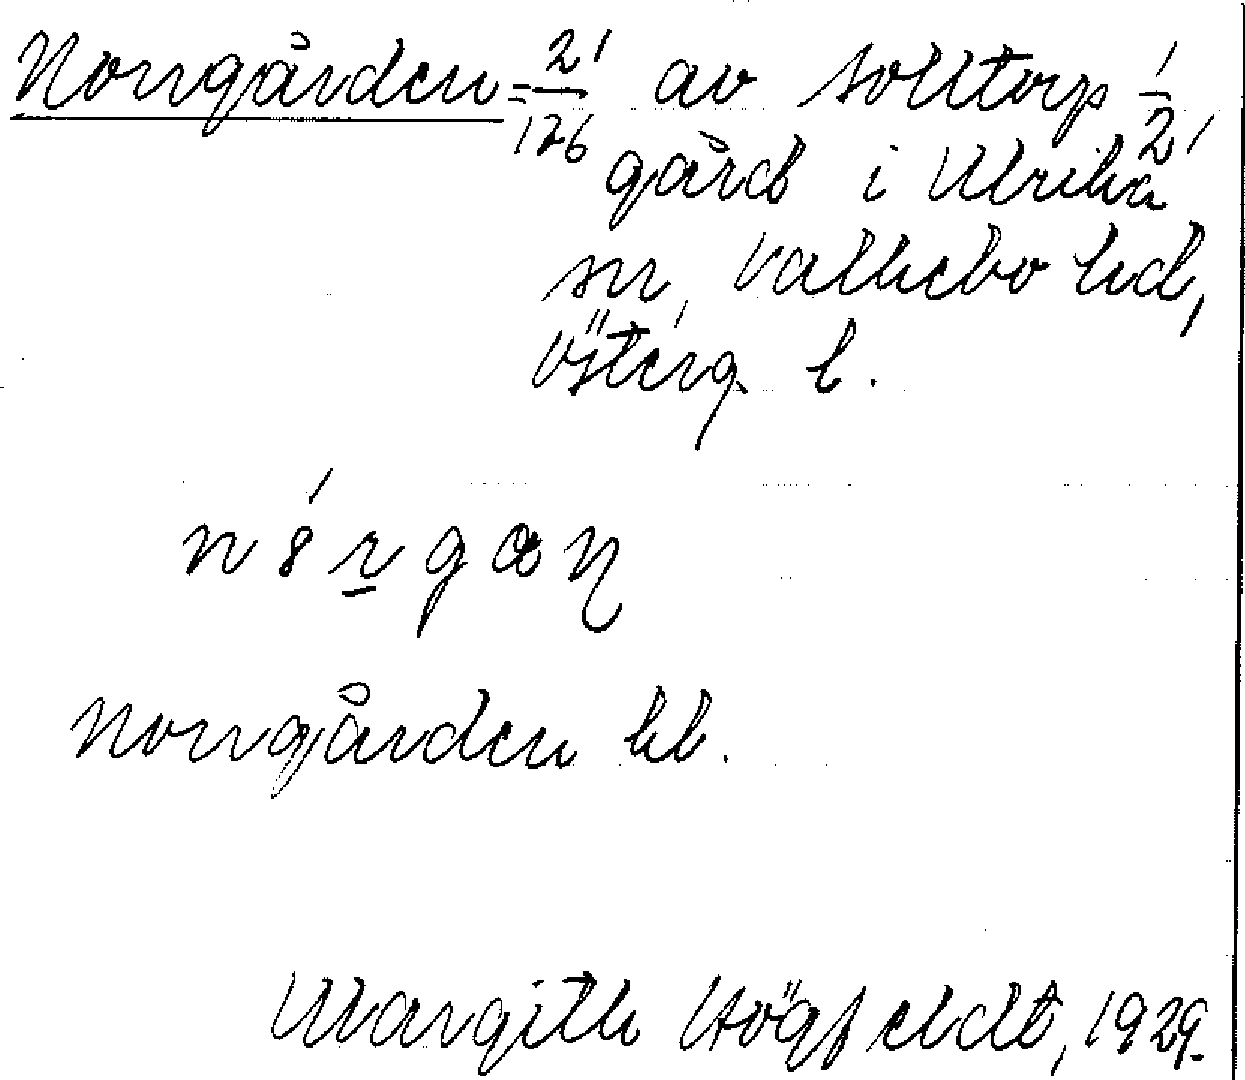 Norrgården = 21/126 av Solltorp 1/2,
gård i Ulrika
sn, Valkebo hd,
Österg. l.
nórgaɳ
Norrgården kb.
Margith Högfeldt, 1929.